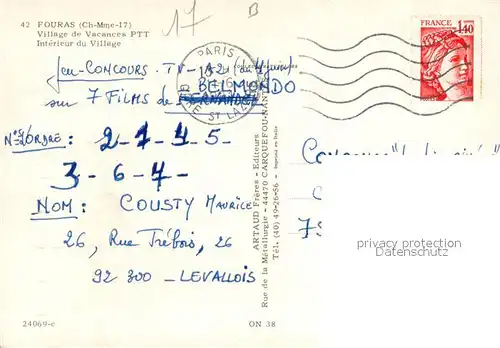 42 FOURAS (Ch-Mme-17)
Village de Vacances PTT
Intérieur du Village
17
B
FRANCE 1,40
PARIS
ST LAZ
Jeu-CONCOURS. TV - A2 (du 4 juin)
BELMONDO
sur 7 FILMS de FERNANDEL
N°S D'ORDRE: 2-1-4-5-
3-6-7-
NOM: COUSTY Maurice
26, Rue Trébois, 26
92 300 - LEVALLOIS
ARTAUD Frères - Editeurs
Rue de la Métallurgie - 44470 CARQUEFOU-NAN
Tél. (40) 49-26-56 - Imprimé en Italie
privacy protection
Datenschutz
24069-c
ON 38